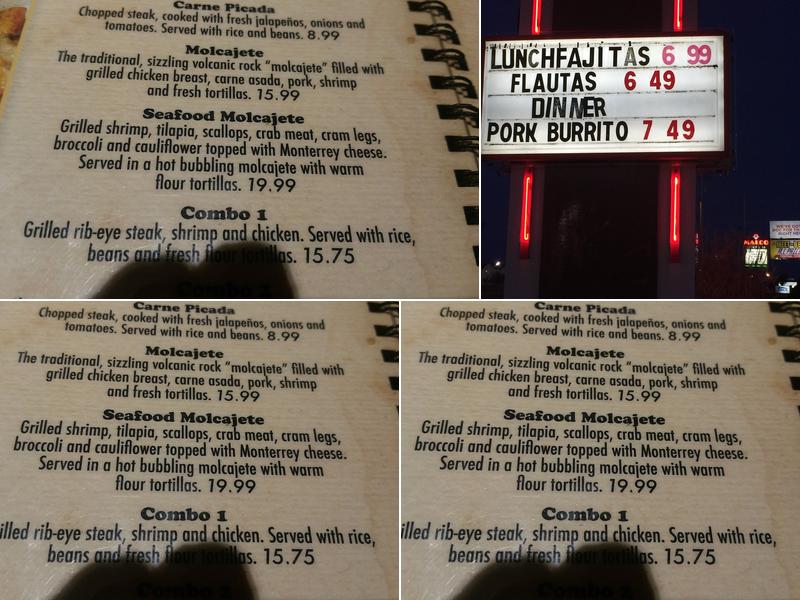 Carne Picada
Chopped steak, cooked with fresh jalapeños, onions and
tomatoes. Served with rice and beans. 8.99
Molcajete
The traditional, sizzling volcanic rock "molcajete" filled with
grilled chicken breast, carne asada, pork, shrimp
and fresh tortillas. 15.99
Seafood Molcajete
Grilled shrimp, tilapia, scallops, crab meat, cram legs,
broccoli and cauliflower topped with Monterrey cheese.
Served in a hot bubbling molcajete with warm
flour tortillas. 19.99
Combo 1
Grilled rib-eye steak, shrimp and chicken. Served with rice,
beans and fresh flour tortillas. 15.75
LUNCHFAJITAS 6 99
FLAUTAS 6 49
DINNER
PORK BURRITO 7 49
MALCO
Carne Picada
Chopped steak, cooked with fresh jalapeños, onions and
tomatoes. Served with rice and beans. 8.99
Molcajete
The traditional, sizzling volcanic rock "molcajete" filled with
grilled chicken breast, carne asada, pork, shrimp
and fresh tortillas. 15.99
Seafood Molcajete
Grilled shrimp, tilapia, scallops, crab meat, cram legs,
broccoli and cauliflower topped with Monterrey cheese.
Served in a hot bubbling molcajete with warm
flour tortillas. 19.99
Combo 1
illed rib-eye steak, shrimp and chicken. Served with rice,
beans and fresh flour tortillas. 15.75
Carne Picada
Chopped steak, cooked with fresh jalapeños, onions and
tomatoes. Served with rice and beans. 8.99
Molcajete
The traditional, sizzling volcanic rock "molcajete" filled with
grilled chicken breast, carne asada, pork, shrimp
and fresh tortillas. 15.99
Seafood Molcajete
Grilled shrimp, tilapia, scallops, crab meat, cram legs,
broccoli and cauliflower topped with Monterrey cheese.
Served in a hot bubbling molcajete with warm
flour tortillas. 19.99
Combo 1
illed rib-eye steak, shrimp and chicken. Served with rice,
beans and fresh flour tortillas. 15.75